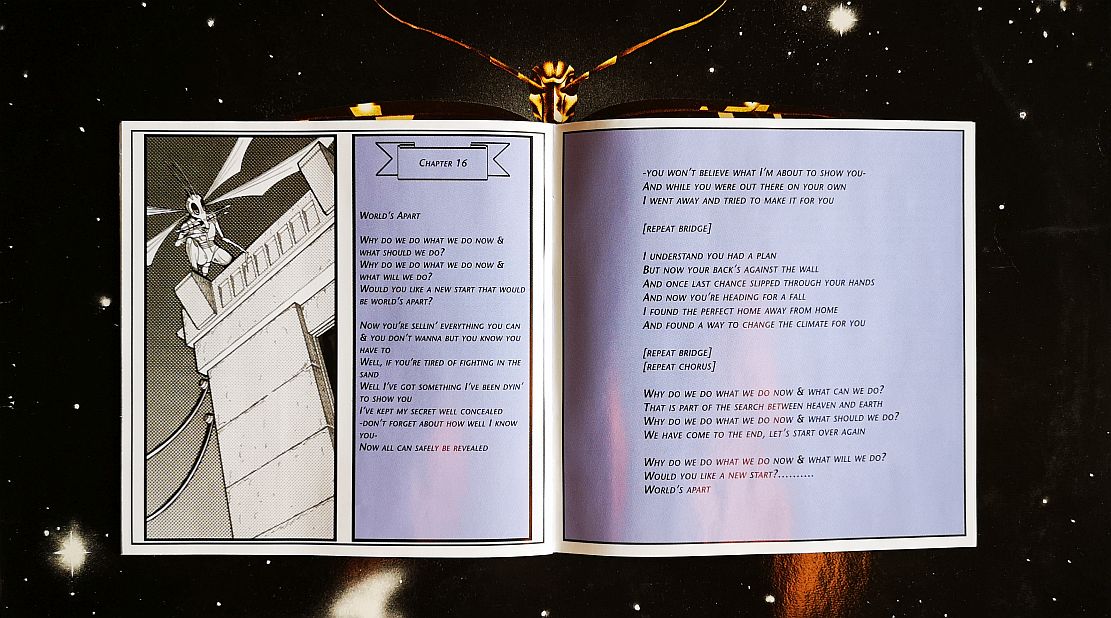 Chapter 16
World's Apart
Why do we do what we do now &
what should we do?
Why do we do what we do now &
what will we do?
Would you like a new start that would
be world's apart?
Now you're sellin' everything you can
& you don't wanna but you know you
have to
Well, if you're tired of fighting in the
sand
Well I've got something I've been dyin'
to show you
I've kept my secret well concealed
-don't forget about how well I know
you-
Now all can safely be revealed
-you won't believe what I'm about to show you-
And while you were out there on your own
I went away and tried to make it for you
[repeat bridge]
I understand you had a plan
But now your back's against the wall
And once last chance slipped through your hands
And now you're heading for a fall
I found the perfect home away from home
And found a way to change the climate for you
[repeat bridge]
[repeat chorus]
Why do we do what we do now & what can we do?
That is part of the search between heaven and earth
Why do we do what we do now & what should we do?
We have come to the end, let's start over again
Why do we do what we do now & what will we do?
Would you like a new start?..........
World's apart